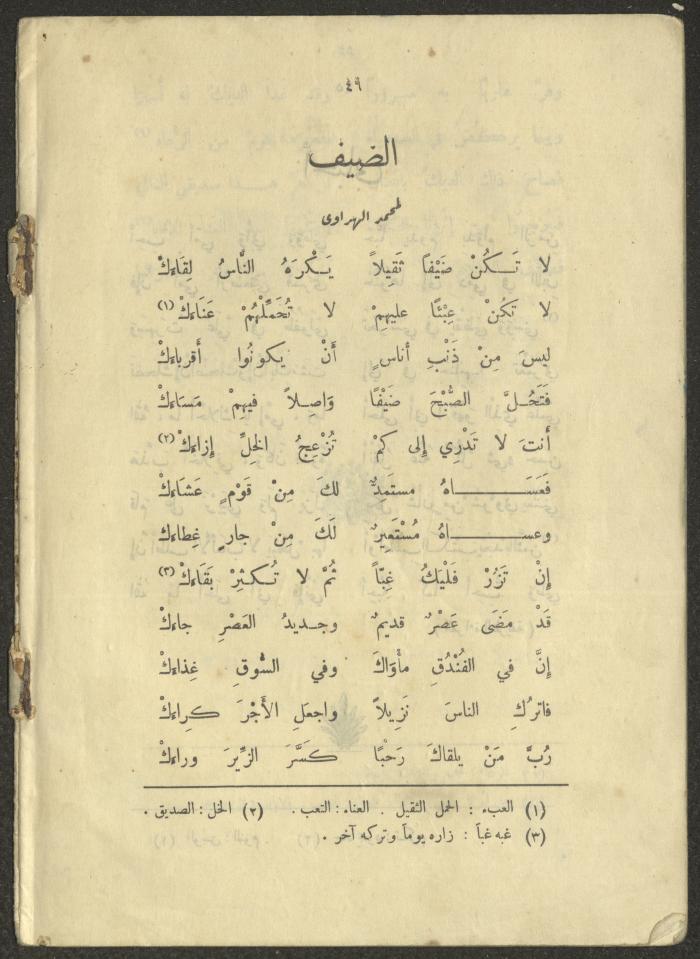 ٤٩
الضيف
لمحمد الهراوى
لا تَكُنْ ضَيْفًا ثَقِيلاً يَكْرَهُ النَّاسُ لِقَاءَكْ
لا تكُنْ عِبْئًا عليهِمْ لا تُحَمِّلْهُمْ عَنَاءَكْ (١)
ليسَ مِنْ ذَنْبِ أناسٍ أَنْ يكونُوا أَقرباءَكْ
فَتَحُلَّ الصُّبْحَ ضَيْفًا وَاصِلاً فيهمْ مَسَاءَكْ
أَنتَ لا تَدْرِي إلى كمْ تُزْعِجُ الخِلَّ إزاءَكْ (٢)
فَعَسَاهُ مستَمِدٌّ لكَ مِنْ قَوْمٍ عَشَاءَكْ
وعساهُ مُسْتَعِيرٌ لَكَ مِنْ جارٍ غِطاءَك
إنْ تَزُرْ فَلْيَكُ غِبًّا ثُمَّ لا تُكثِرْ بَقَاءَكْ (٣)
قَدْ مَضَى عَصْرٌ قديمٌ وجديدُ العَصْرِ جاءَكْ
إنَّ في الفُنْدُقِ مأْوَاكَ وفي السُّوقِ غِذاءَكْ
فاتركِ الناسَ نَزِيلاً واجعَلِ الأَجْرَ كِراءَكْ
رُبَّ مَنْ يلقاكَ رَحْبًا كَسَّرَ الزِّيرَ وراءَكْ
(١) العبء : الحمل الثقيل . العناء : التعب . (٢) الخل : الصديق .
(٣) غبه غباً : زاره يوماً وتركه آخر .